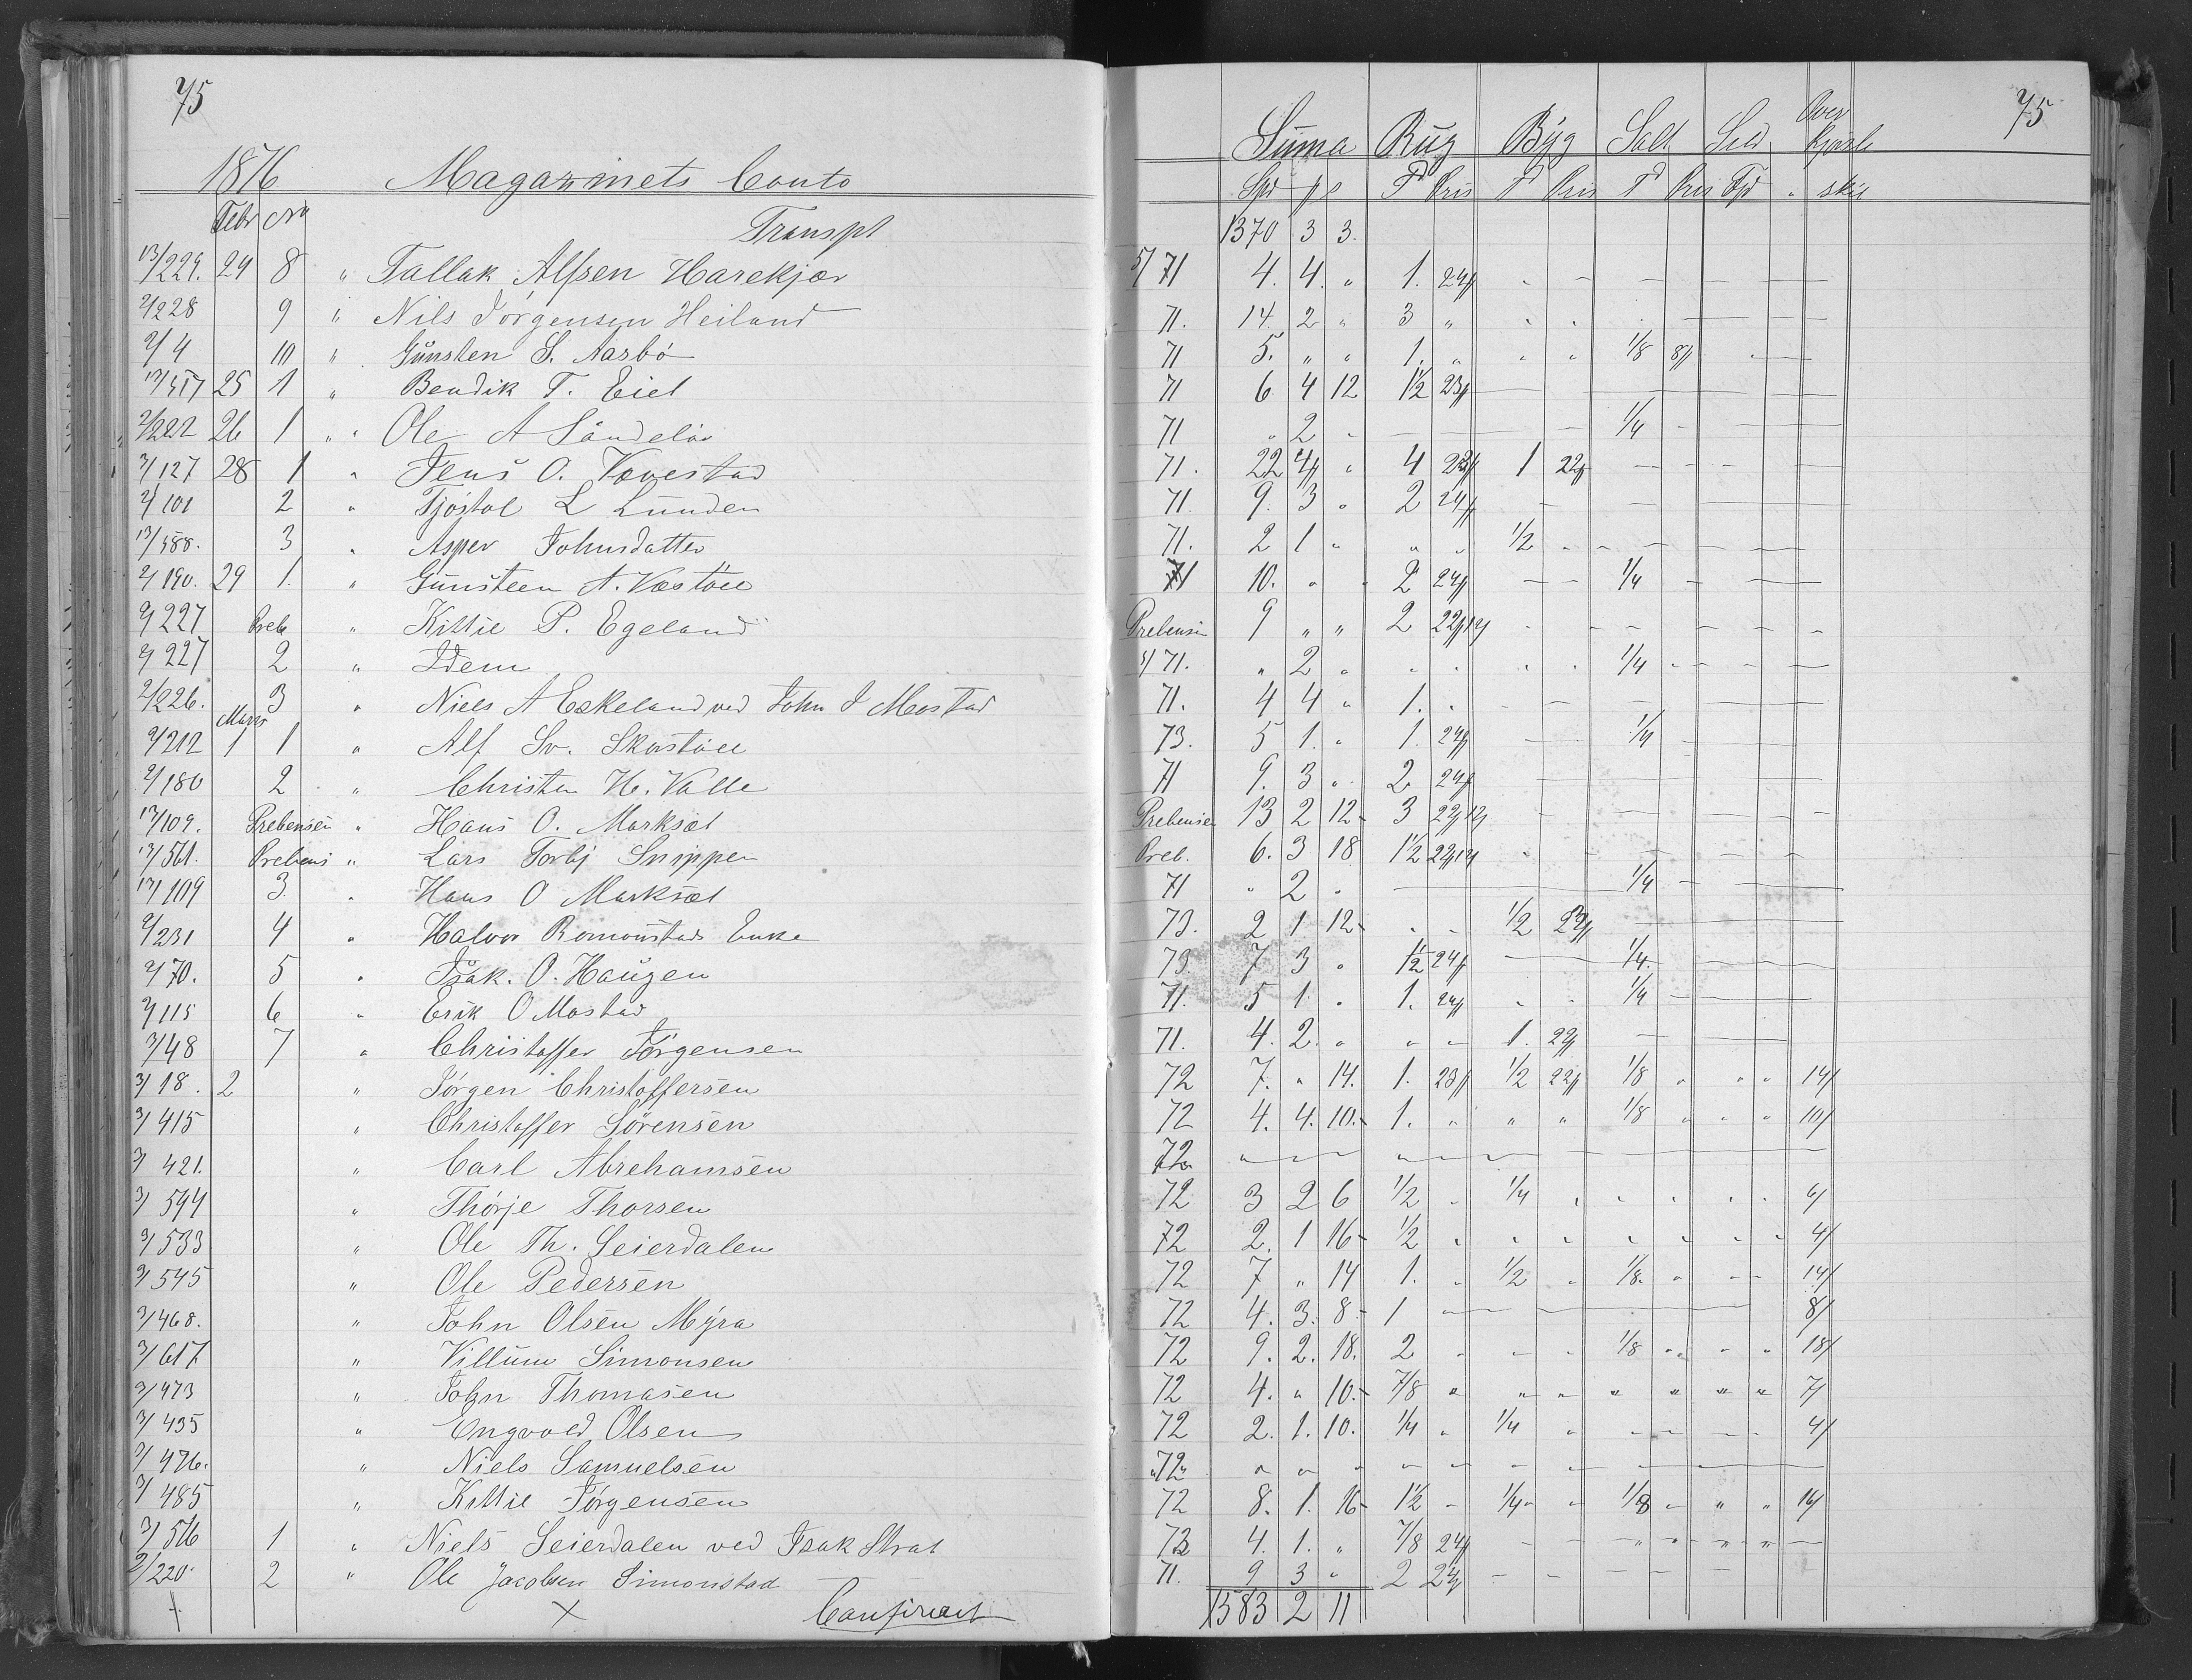 75
1876 Magazinets Conto
Febr No
Transpt
13/229. 24 8 " Tallak Alfsen Harekjær
2/228 9 " Nils Jørgensen Heiland
2/4 10 " Gunsten S. Aasbø
13/517 25 1 " Bendik T. Eiet
2/222 26 1 " Ole A
3/127 28 1 " Jens O. Vovestad
2/101 2 " Tjøstol L Lunden
13/588. 3 " Asper Johnsdatter
2/190. 29 1. " Gunsteen A. Væstøel
2/227 Preb " Kittie P. Egeland
2/227 2 " Idem
2/226. 3 " Niels A Eskeland ved John J Mostad
Marts
2/212 1 1 " Alf Sv. Skorstøel
2/180 2 " Christen H. Valle
13/109. Prebensen " Hans O. Marksæt
13/561. Prebens " Lars Torbj Snippen
13/109 3 " Hans O Marksæt
2/231 4 " Halvor Romonstads Enke
2/70. 5 " Isak. O. Haugen
2/115 6 " Erik O Mostad
3/48 7 " Christoffer Jörgensen
3/18. 2 " Jörgen Christoffersen
3/415 " Christoffer Sörensen
3/421. " Carl Abrehamsen
3/594 " Thørje Thorsen
3/533 " Ole Th. Seierdalen
3/545 " Ole Pedersen
3/468. " John Olsen Myra
3/617 " Villum Simonsen
3/473 " John Thomasen
3/435 " Engvold Olsen
3/476. " Niels Samuelsen
3/485 " Kittie Jörgensen
3/516 1 " Niels Seierdalen ved Isak Strat
2/220. 2 " Ole Jacobsen Simonstad
+ × Confereret
75
Suma Rug Byg Salt Sild Over Kjørsle
Spd p s Td Pris T Pris Td Pris Fjd " skil
1370 3 3.
5/71 4. 4. " 1. 24/
71. 14. 2 " 3 "
71 5. " " 1. " " " 1/8 8/
71 6 4 12 1½ 23/
71 " 2 - 1/4
71. 22 4 " 4 23/ 1 22/
71. 9. 3 " 2 24/
71. 2 1 " " " 1/2
71 10. " " 2 24/ 1/4
Prebensen 9 " " 2 22/12/
5/71. " 2 " " " " " 1/4
71. 4 4 " 1. "
73. 5 1. " 1. 24/ 1/4
71 9. 3 " 2 24/
Prebensen 13 2 12 3 22/12/
Preb. 6. 3 18 1½ 22/12/
71 " 2 " 1/4
73. 2 1 12 " " 1/2 23/
73. 7 3 " 1½ 24/ 1/4
71. 5 1 " 1. 24/ 1/4
71. 4. 2. " " " 1. 22/
72 7. " 14. 1. 23/ 1/2 22/ 1/8 " " " 14/
72 4. 4. 10. 1. " " " 1/8 " " " 10/
72
72 3 2 6 1/2 " 1/4 " " " " " 6/
72 2. 1 16 1/2 " " " " " " " 4/
72 7 " 14 1. " 1/2 " 1/8 " " " 14/
72 4. 3. 8 1 8/
72 9. 2. 18. 2 " " " 1/8 " " " 18/
72 4. " 10. 7/8 " " " " " " " 7/
72 2. 1. 10. 1/4 " 1/4 " 4/
"72" " " " " "
72 8. 1. 16 1½ " 1/4 " 1/8 " " " 16/
73 4. 1. " 7/8 24/
71. 9 3 " 2 24/
1583 2 11